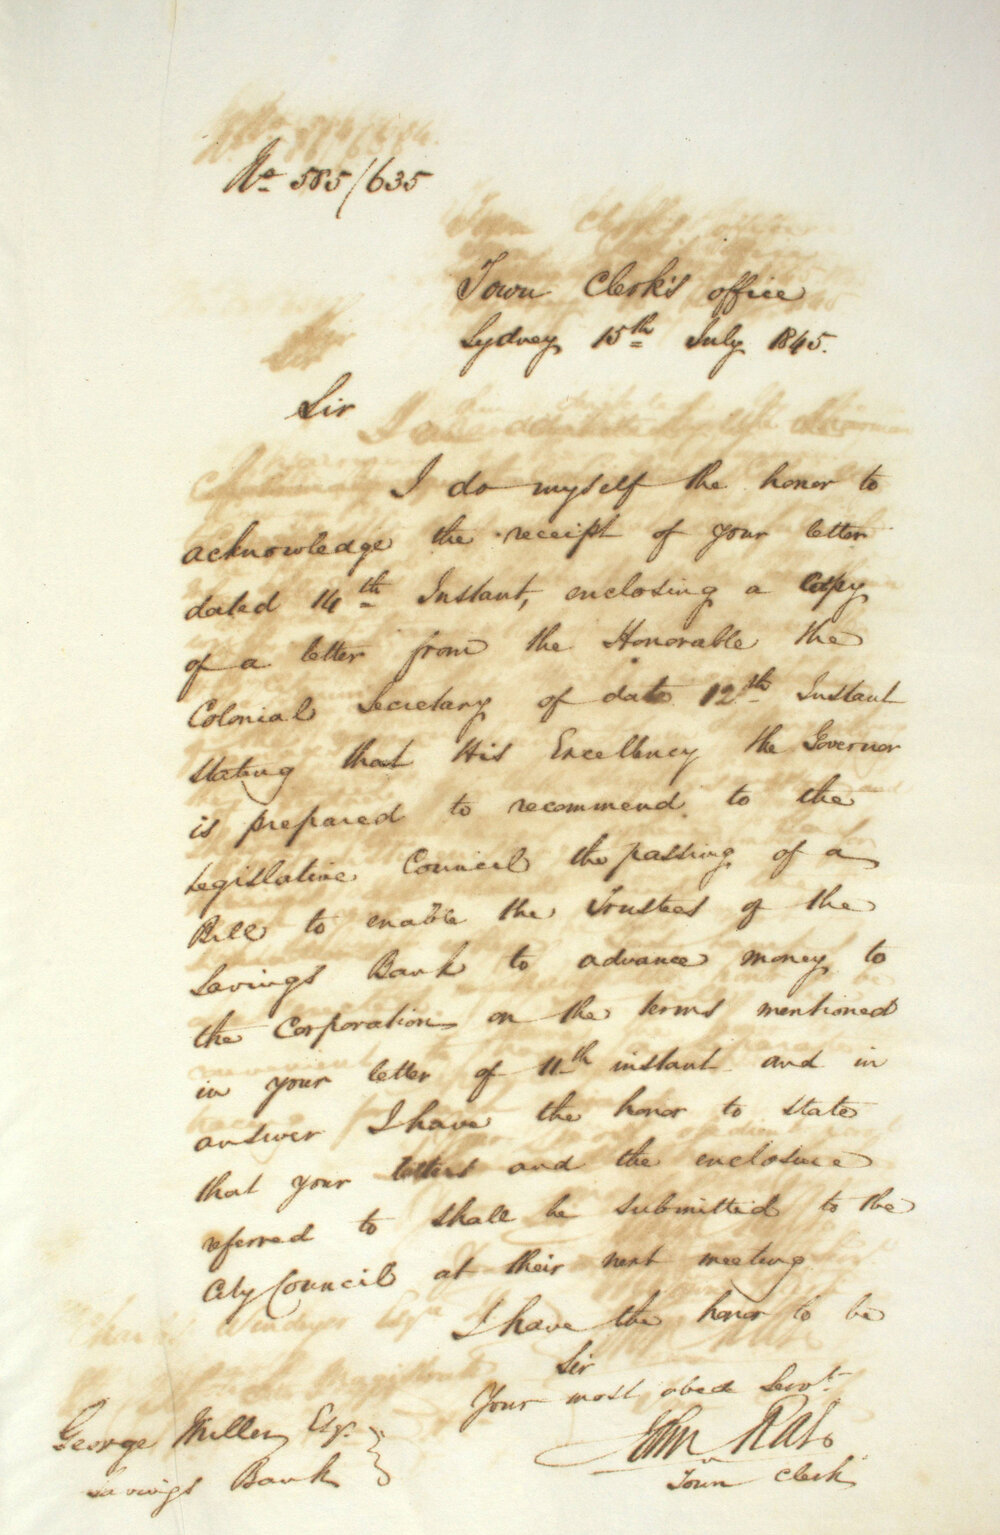 No 585/635
Town Clerk's office
Sydney 15th July 1845.
Sir
I do myself the honor to
acknowledge the receipt of your letter
dated 14th Instant, enclosing a copy
of a letter from the Honorable the
Colonial Secretary of date 12th Instant
stating that His Excellency the Governor
is prepared to recommend to the
Legislative Council the passing of a
Bill to enable the Trustees of the
Savings Bank to advance money to
the Corporation on the terms mentioned
in your letter of 11th instant and in
answer I have the honor to state
that your letters and the enclosure
referred to shall be submitted to the
City Council at their next meeting
I have the honor to be
Sir
Your most obed Servt
John
Town Clerk
George Miller Esqr.
Savings Bank